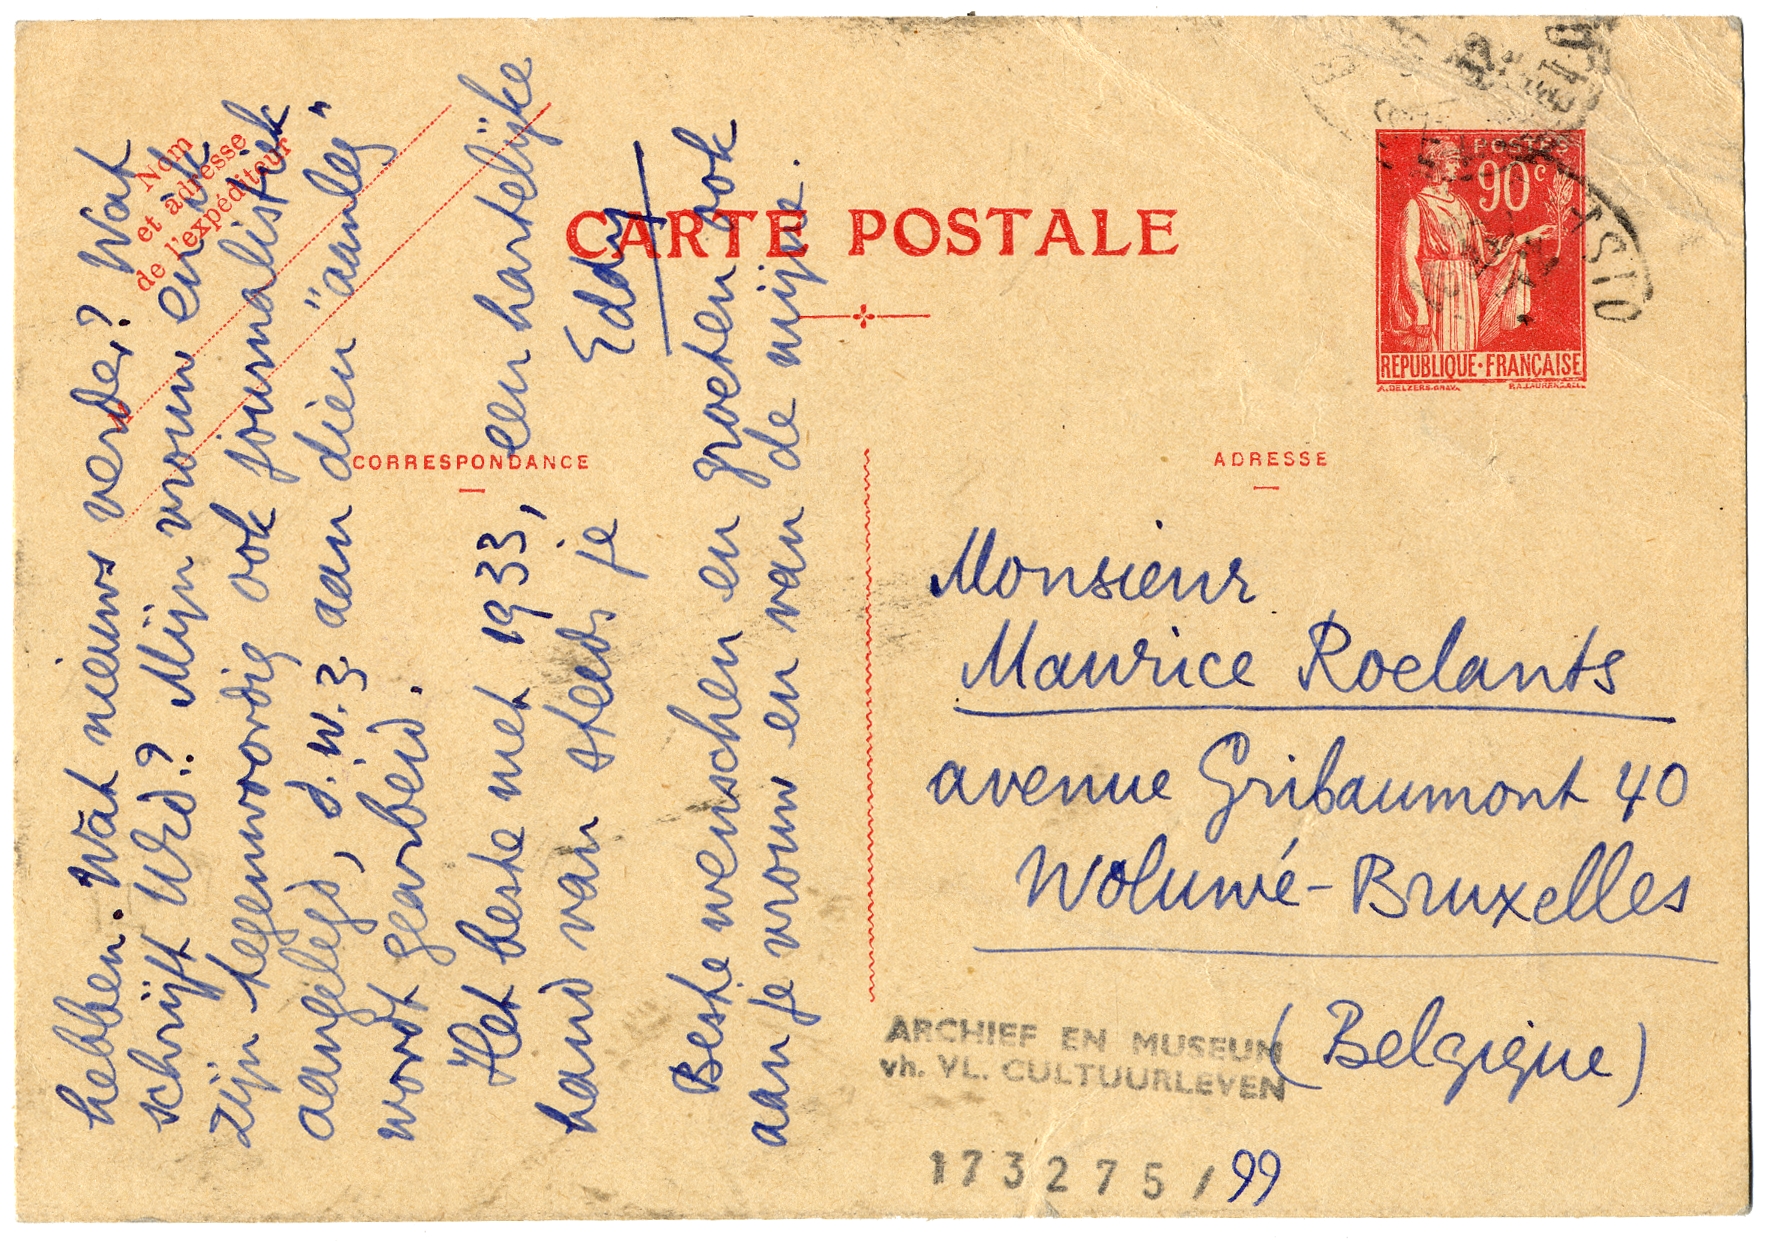 hebben. Wat nieuws verder? Wat
schrijft Urd.? Mijn vrouw en ik
zijn tegenwoordig ook journalistiek
aangelegd, d.w.z. aan dien "aanleg"
wordt gearbeid.
Het beste met 1933, een hartelijke
hand van steeds je
Eddy
Beste wenschen en groeten ook
aan je vrouw en van de mijne.
Nom
et adresse
de l'expéditeur
CARTE POSTALE
POSTES
90c
REPUBLIQUE·FRANÇAISE
CORRESPONDANCE
ADRESSE
Monsieur
Maurice Roelants
avenue Gribaumont 40
Woluwé-Bruxelles
(Belgique)
ARCHIEF EN MUSEUM
vh. VL. CULTUURLEVEN
173275/99